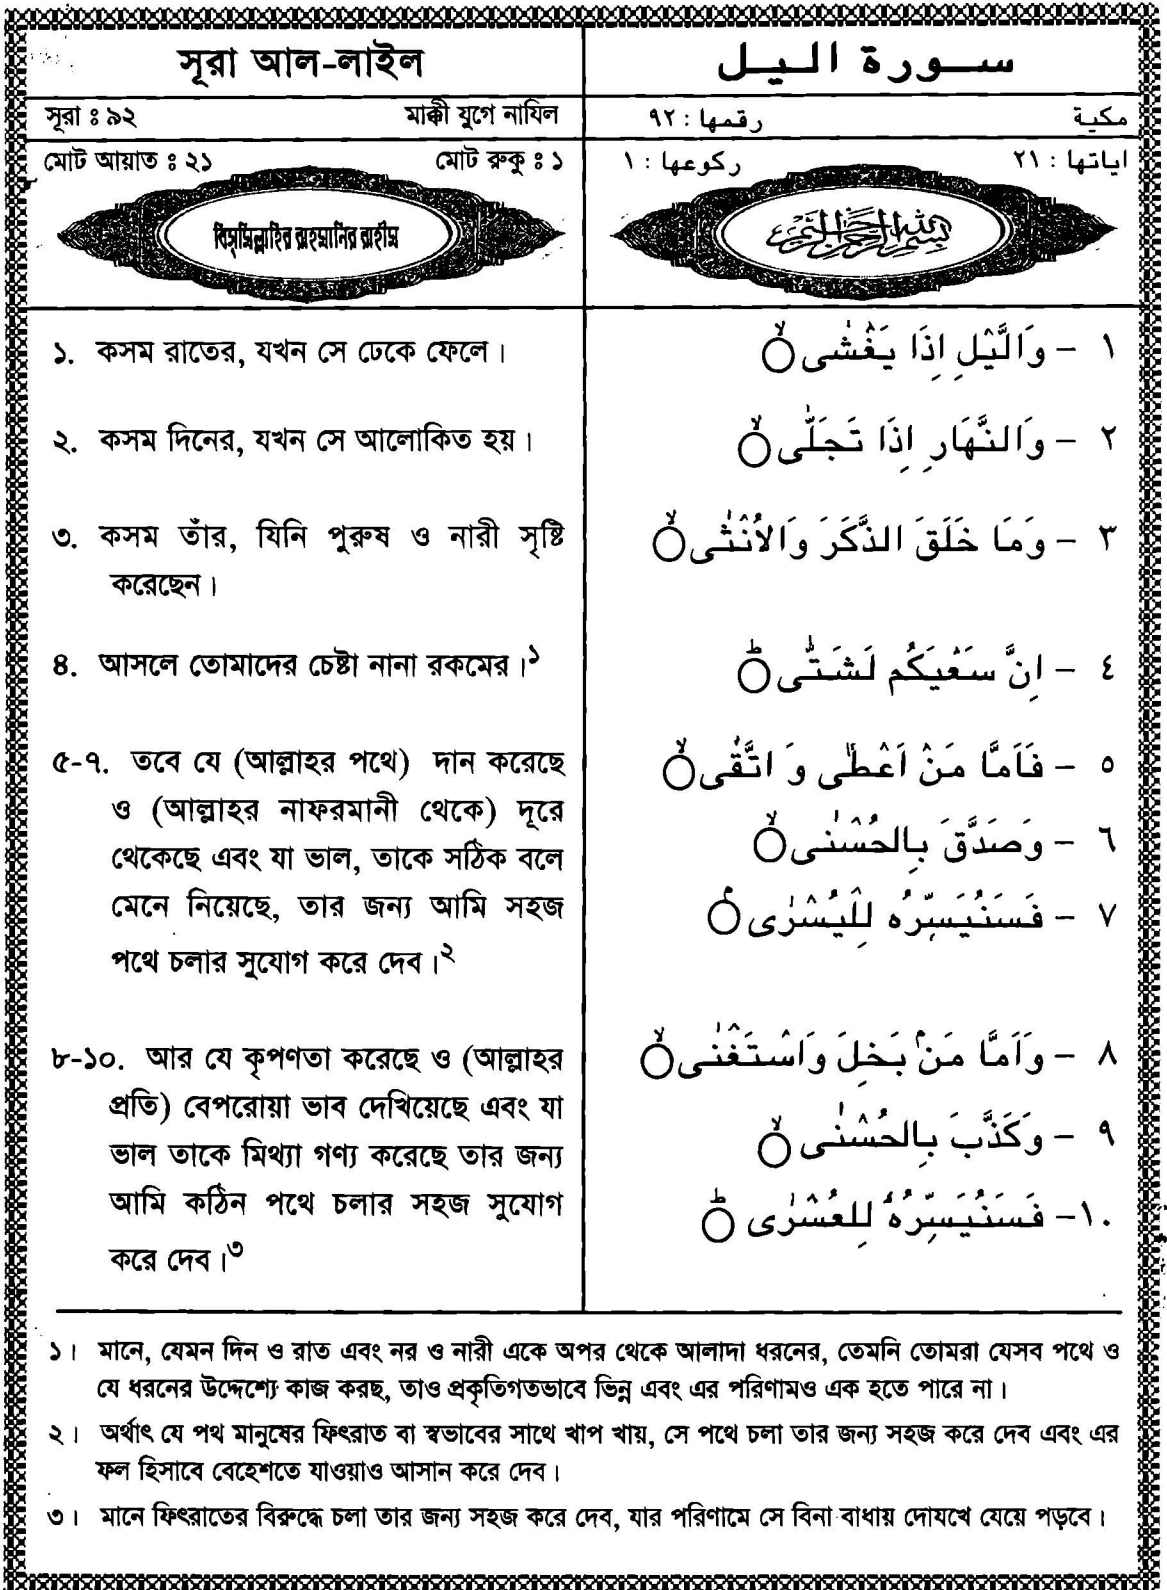 সূরা আল-লাইল
সূরা ঃ ৯২ মাক্কী যুগে নাযিল
মোট আয়াত ঃ ২১ মোট রুকু ঃ ১
বিসমিল্লাহির রাহমানির রাহীম
১. কসম রাতের, যখন সে ঢেকে ফেলে।
২. কসম দিনের, যখন সে আলোকিত হয়।
৩. কসম তাঁর, যিনি পুরুষ ও নারী সৃষ্টি
করেছেন।
৪. আসলে তোমাদের চেষ্টা নানা রকমের।১
৫-৭. তবে যে (আল্লাহর পথে) দান করেছে
ও (আল্লাহর নাফরমানী থেকে) দূরে
থেকেছে এবং যা ভাল, তাকে সঠিক বলে
মেনে নিয়েছে, তার জন্য আমি সহজ
পথে চলার সুযোগ করে দেব।২
৮-১০. আর যে কৃপণতা করেছে ও (আল্লাহর
প্রতি) বেপরোয়া ভাব দেখিয়েছে এবং যা
ভাল তাকে মিথ্যা গণ্য করেছে তার জন্য
আমি কঠিন পথে চলার সহজ সুযোগ
করে দেব।৩
سورة اليل
مكية رقمها : ٩٢
اياتها : ٢١ ركوعها : ١
بسم الله الرحمن الرحيم
١ - وَالَّيْلِ اِذَا يَغْشٰى ۙ
٢ - وَالنَّهَارِ اِذَا تَجَلّٰى ۙ
٣ - وَمَا خَلَقَ الذَّكَرَ وَالْاُنْثٰى ۙ
٤ - اِنَّ سَعْيَكُم لَشَتّٰى ؕ
٥ - فَاَمَّا مَنْ اَعْطٰى وَ اتَّقٰى ۙ
٦ - وَصَدَّقَ بِالحُسْنٰى ۙ
٧ - فَسَنُيَسِّرُه لِلْيُسْرٰى ۚ
٨ - وَاَمَّا مَنْۢ بَخِلَ وَاسْتَغْنٰى ۙ
٩ - وَكَذَّبَ بِالحُسْنٰى ۙ
١٠- فَسَنُيَسِّرُهٗ لِلعُسْرٰى ؕ
১। মানে, যেমন দিন ও রাত এবং নর ও নারী একে অপর থেকে আলাদা ধরনের, তেমনি তোমরা যেসব পথে ও
যে ধরনের উদ্দেশ্যে কাজ করছ, তাও প্রকৃতিগতভাবে ভিন্ন এবং এর পরিণামও এক হতে পারে না।
২। অর্থাৎ যে পথ মানুষের ফিৎরাত বা স্বভাবের সাথে খাপ খায়, সে পথে চলা তার জন্য সহজ করে দেব এবং এর
ফল হিসাবে বেহেশতে যাওয়াও আসান করে দেব।
৩। মানে ফিৎরাতের বিরুদ্ধে চলা তার জন্য সহজ করে দেব, যার পরিণামে সে বিনা বাধায় দোযখে যেয়ে পড়বে।